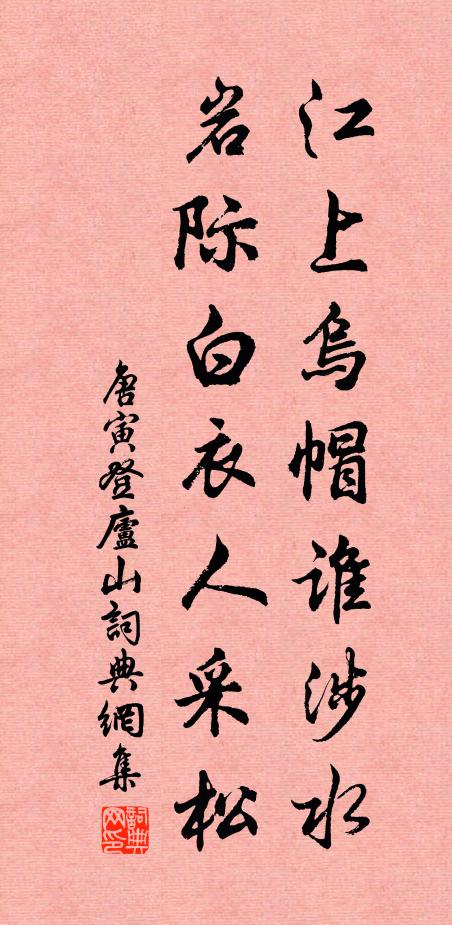 江上乌帽谁涉水
岩际白衣人采松
唐寅登廬山詞典網集
詞典网印